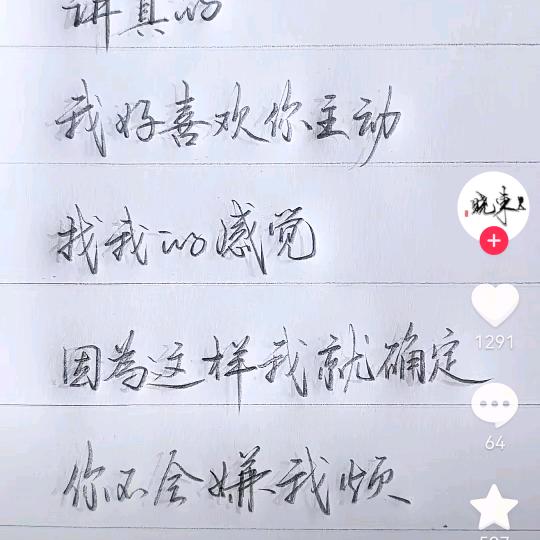 讲真的
我好喜欢你主动
找我的感觉
因為这样我就确定
你不会嫌我烦
晓东
1291
64